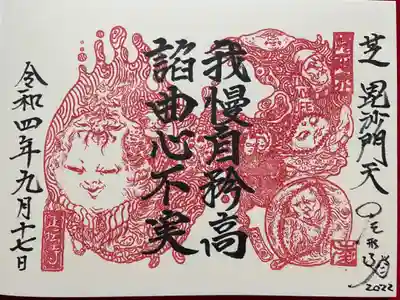 芝 毘沙門天
我慢自矜高
諂曲心不実
令和四年九月十七日
2022